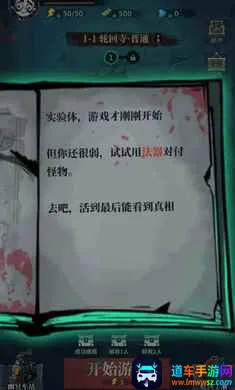 50/50
0
0
1-1 轮回寺·普通
1
实验体，游戏才刚刚开始
但你还很弱，试试用法器对付
怪物。
去吧，活到最后能看到真相
开始游
5
道车手游网
www.lmwwww.com